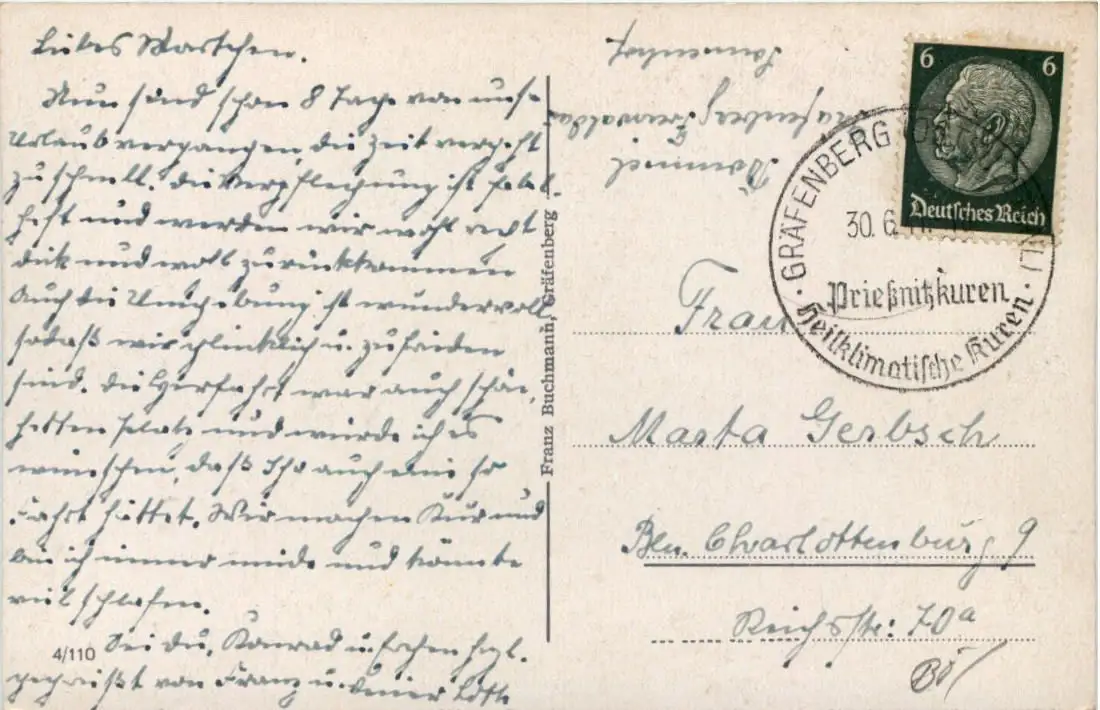 Liebes Martchen.
Nun sind schon 8 Tage von unse-
Urlaub vergangen, die Zeit vergeht
zu schnell. Die Verpflegung ist fabel-
haft und werden wir wohl recht
dick und voll zurückkommen
Auch die Umgebung ist wundervoll
sodaß wir glücklich u. zufrieden
sind. Die Herfahrt war auch schön,
hatten Platz und würde ich es
wünschen, daß Ihr auch eine so
Fahrt hättet. Wir machen Kur und
bin ich immer müde und könnte
viel schlafen.
Sei du, Konrad u. herzl.
gegrüßt von Franz u. Deiner Lotte
4/110
Franz Buchmann, Gräfenberg
Gräfenberg Freiwaldau
6 6
Deutsches Reich
GRÄFENBERG
30. 6.
Prießnitzkuren
Heilklimatische Kuren
Frau
Marta Gerbsch
Bln. Charlottenburg 9
Reichsstr: 70a